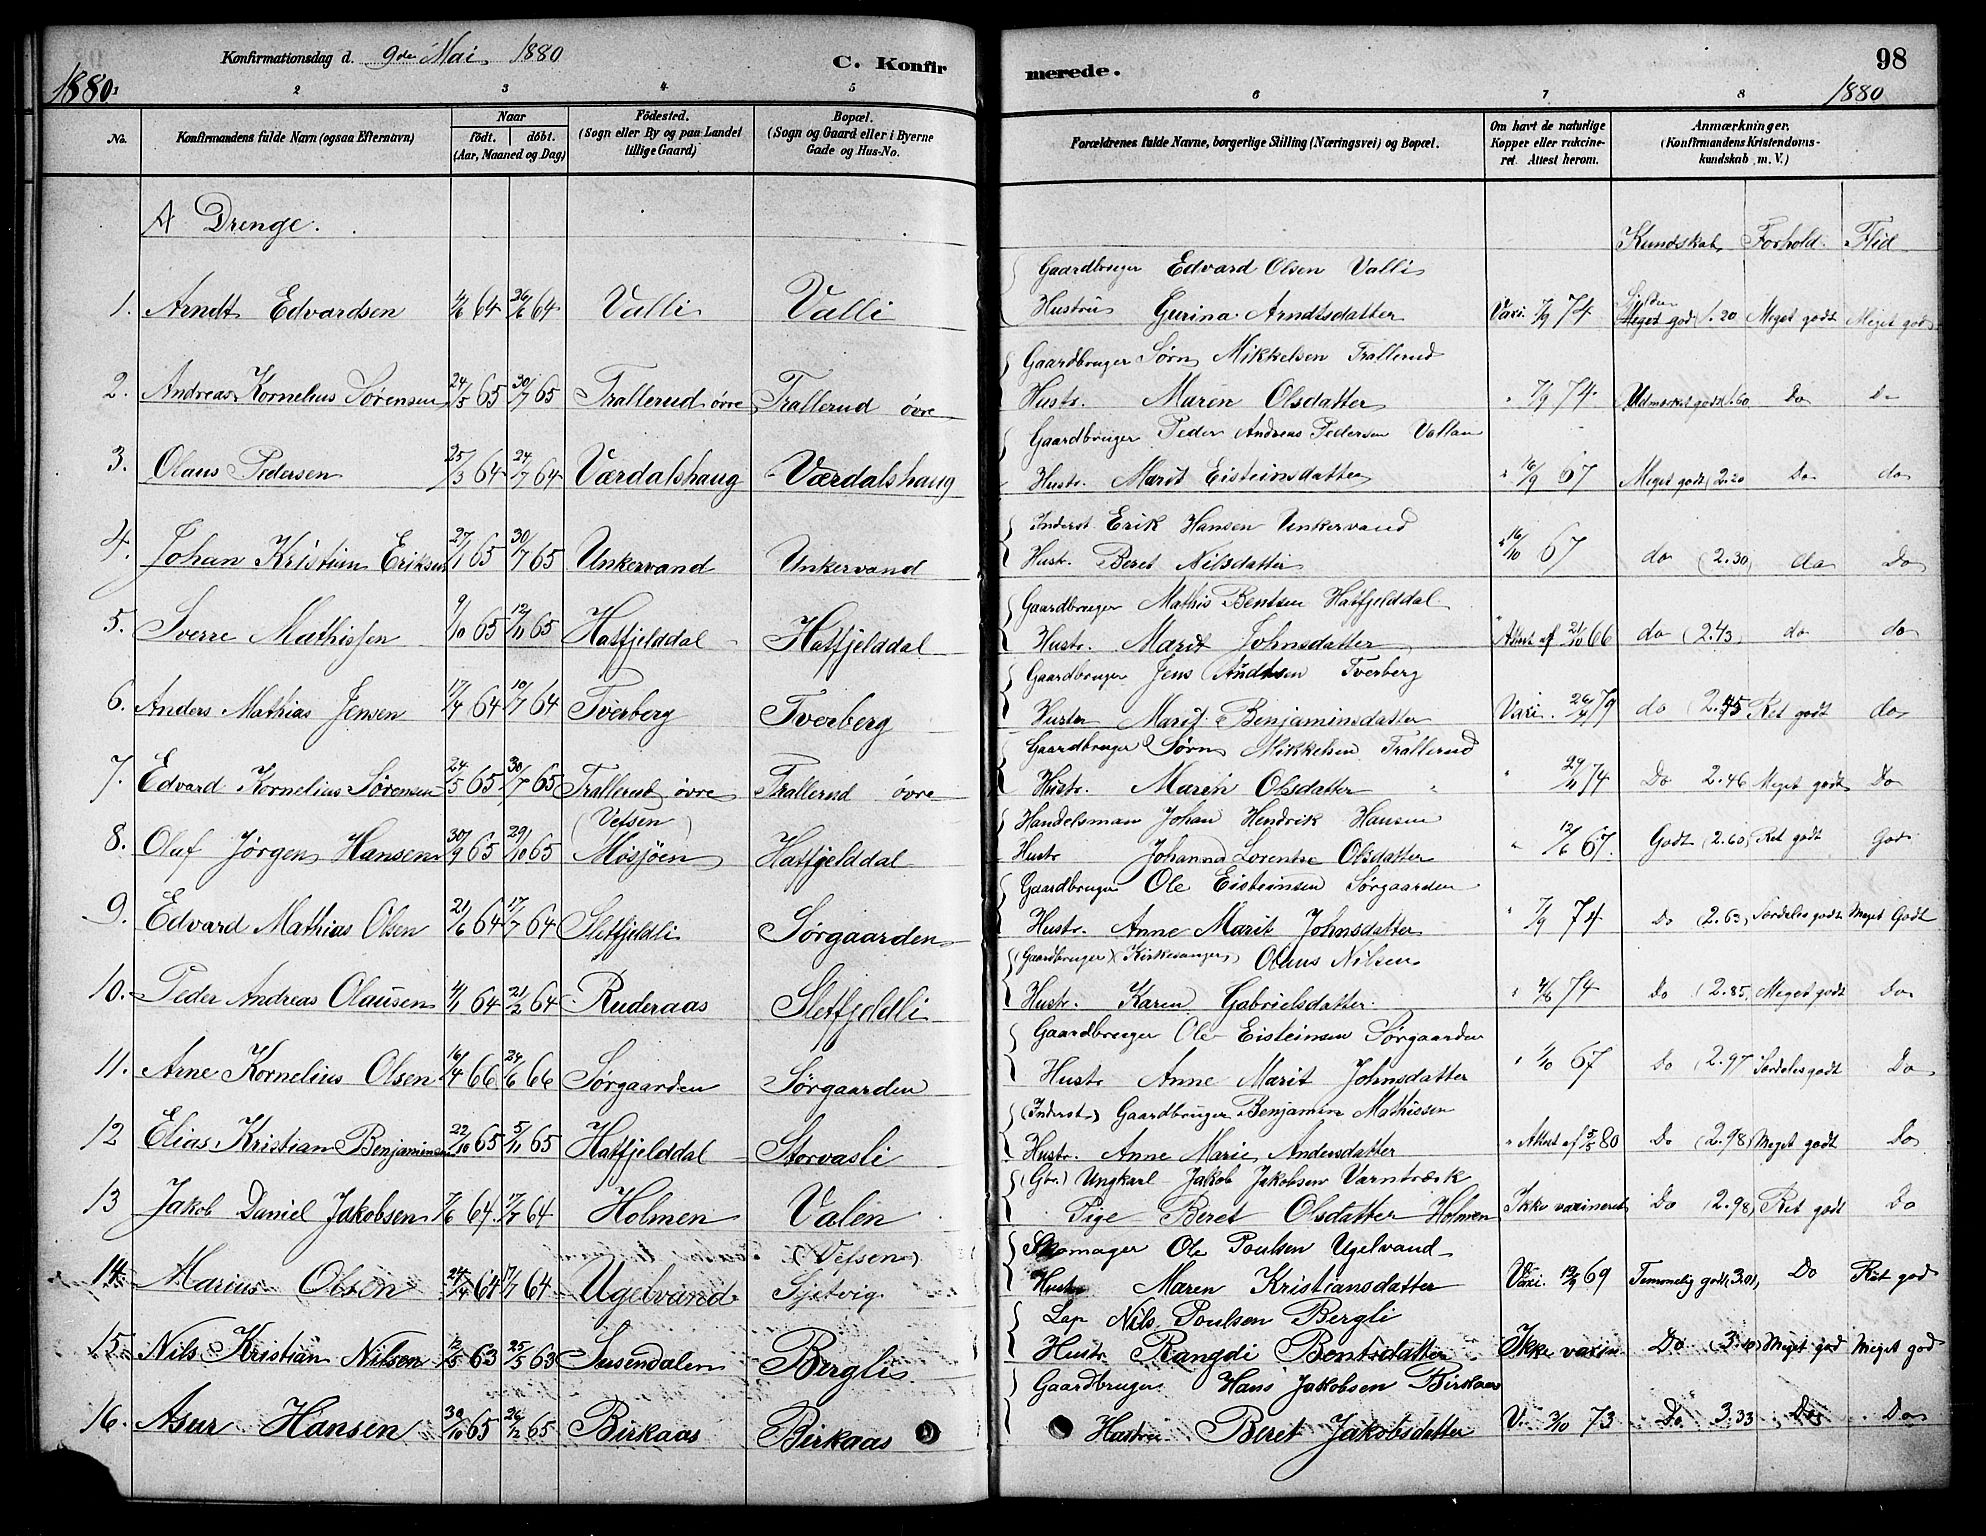 Konfirmationsdag d. 9de Mai 1880
C. Konfirmerede.
98
1880
1880
2 3 4 5 6 7 8
No.
Konfirmandens fulde Navn (ogsaa Efternavn)
Naar
født. døbt.
(Aar, Maaned og Dag)
Fødested.
(Sogn eller By og paa Landet tillige Gaard)
Bopæl.
(Sogn og Gaard eller i Byerne Gade og Hus-No.
Forældrenes fulde Navne, borgerlige Stilling (Næringsvei) og Bopæl.
Om havt de naturlige Kopper eller vakcineret. Attest herom.
Anmærkninger.
(Konfirmandens Kristendomskundskab m. V.)
A Drenge.
Kundskab Forhold Flid
Gaardbruger Edvard Olsen Valli
1. Arndt Edvardsen 4/6 64 26/6 64 Valli Valli Hustru Gurina Arndtsdatter Vaxi. 7/9 74 Meget godt 1.20 Meget godt Meget god
Gaardbruger Sørn Mikkelsen Trallerud
2. Andreas Kornelius Sørensen 24/5 65 30/7 65 Trallerud øvre Trallerud øvre Hustr. Maren Olsdatter " 7/9 74 Udmærket godt 1.60 Do Do
Gaardbruger Peder Andreas Pedersen Vallan
3. Olaus Pedersen 25/3 64 24/7 64 Værdalshaug Værdalshaug Hustr. Marit Eisteinsdatter " 16/9 67 Meget godt (2.20 Do do
Inderst Erik Hansen Unkervand
4. Johan Kristian Eriksen 27/1 65 30/7 65 Unkervand Unkervand Hustr. Beret Nilsdatter " 16/10 67 do (2.30) do Do
Gaardbruger Mathis Bentsen Hatfjelddal
5. Sverre Mathissen 9/10 65 12/11 65 Hatfjelddal Hatfjelddal Hustr. Marit Johnsdatter Attest af 21/10 66 do (2.43) do do
Gaardbruger Jens Andersen Tverberg
6. Anders Mathias Jensen 17/4 64 10/7 64 Tverberg Tverberg Hustru Marit Benjaminsdatter Vaxi. 26/4 79 do (2.45 Ret godt do
Gaardbruger Sørn Mikkelsen Trallerud
7. Edvard Kornelius Sørensen 24/5 65 30/7 65 Trallerud øvre Trallerud øvre Hustr. Maren Olsdatter " 29/11 74 Do 2.46 Meget godt Do
(Vefsen) Handelsman Johan Hendrik Hansen
8. Olaf Jørgen Hansen 30/9 65 29/10 65 Mosjøen Hatfjelddal Hustr Johanna Lorentse Olsdatter " 12/6 67. Godt (2.60) Ret godt God
Gaardbruger Ole Eisteinsen Sørgaarden
9. Edvard Mathias Olsen 21/6 64 17/7 64 Sletfjeldli Sørgaarden Hustr. Anne Marit Johnsdatter " 7/9 74 Do (2.63) Særdeles godt Meget Godt
(Gaardbruger) (Kirkesanger) Olaus Nilsen
10. Peder Andreas Olausen 4/1 64 21/2 64 Ruderaas Sletfjeldli Hustr. Karen Gabrielsdatter. " 4/6 74 Do (2.85. Meget godt Do
Gaardbruger Ole Eisteinsen Sørgaarden
11. Arne Kornelius Olsen 16/4 66 24/6 66 Sørgaarden Sørgaarden Hustr Anne Marit Johnsdatter " 1/10 67 Do (2.97 Særdeles godt Do
(Inderst) Gaardbruger Benjamin Mathissen
12 Elias Kristian Benjaminsen 22/10 65 5/11 65 Hatfjelddal Storvasli Hustr. Anne Marie Andersdatter " Attest af 5/5 80 Do (2.98) Meget godt Do
(Gbr.) Ungkarl Jakob Jakobsen Varntræsk
13 Jakob Daniel Jakobsen 7/6 64. 17/7 64 Holmen Valen Pige Beret Olsdatter Holmen Ikke vaxineret Do (2.98) Ret godt Do
(Vefsen) Skomager Ole Poulsen Ugelvand
14. Marius Olsen 24/4 64 17/7 64 Ugelvand Hustr Maren Kristiansdatter Vaxi. 19/9 69 Temmelig godt 3.01, Do Ret god
Lap Nils Poulsen Bergli
15. Nils Kristian Nilsen 12/5 63 25/5 63 Susendalen Bergli Hustr Rangdi Bentsdatter Ikke vaxin Do (3.10) Meget god Meget god
Gaardbruger Hans Jakobsen Birkaas
16. Asur Hansen 30/10 65 26/12 65 Birkaas Birkaas Hustru Beret Jakobsdatter V. 3/10 73 Do 3.33 Do Do